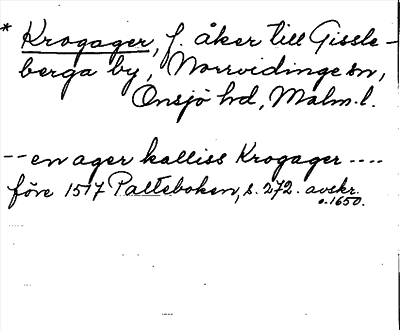 * Krogager, f. åker till Gissle-
berga by, Norrvidinge sn,
Onsjö hd, Malm. l.
-- en ager kalliss Krogager ----
före 1517 Palteboken, s. 272. avskr.
o. 1650.